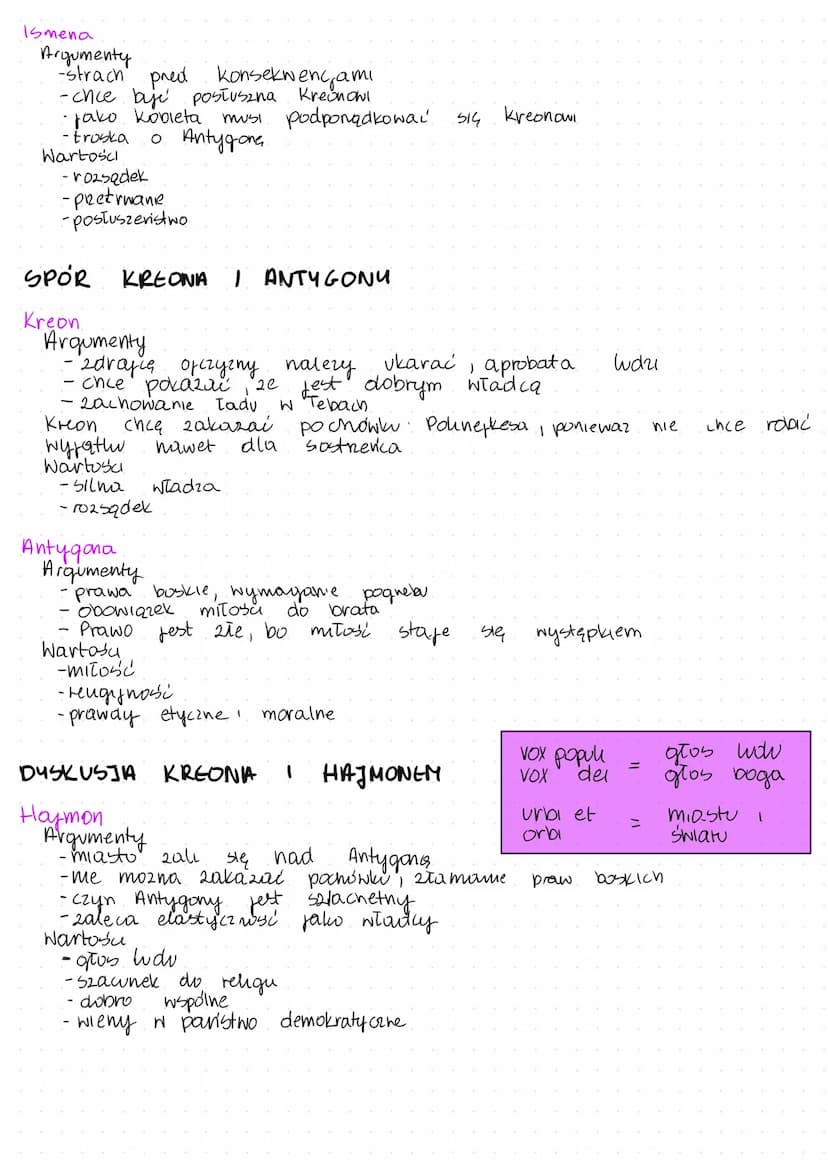 Ismena
Argumenty
-strach przed konsekwencjami
-chce być posłuszna Kreonowi
-jako kobieta musi podporządkować się Kreonowi
-troska o Antygonę
Wartości
-rozsądek
-przetrwanie
-posłuszeństwo
SPÓR KREONA I ANTYGONY
Kreon
Argumenty
- zdrajcę ojczyzny należy ukarać, aprobata ludzi
- chce pokazać, że jest dobrym władcą
- zachowanie ładu w Tebach
Kreon chcę zakazać pochówku Polinejkesa, ponieważ nie chce robić
wyjątku nawet dla siostrzeńca
Wartości
-silna władza
-rozsądek
Antygona
Argumenty
- prawa boskie, wymaganie pogrzebu
- obowiązek miłości do brata
- Prawo jest złe, bo miłość staje się występkiem
Wartości
-miłość
-religijność
-prawdy etyczne i moralne
DYSKUSJA KREONA I HAJMONEM
vox populi = głos ludu
vox dei głos boga
urbi et = miastu i
orbi światu
Hajmon
Argumenty
-miasto żali się nad Antygoną
-nie można zakazać pochówku, złamanie praw boskich
-czyn Antygony jest szlachetny
-zaleca elastyczność jako władcy
Wartości
- głos ludu
-szacunek do religii
- dobro wspólne
- wierzy w państwo demokratyczne